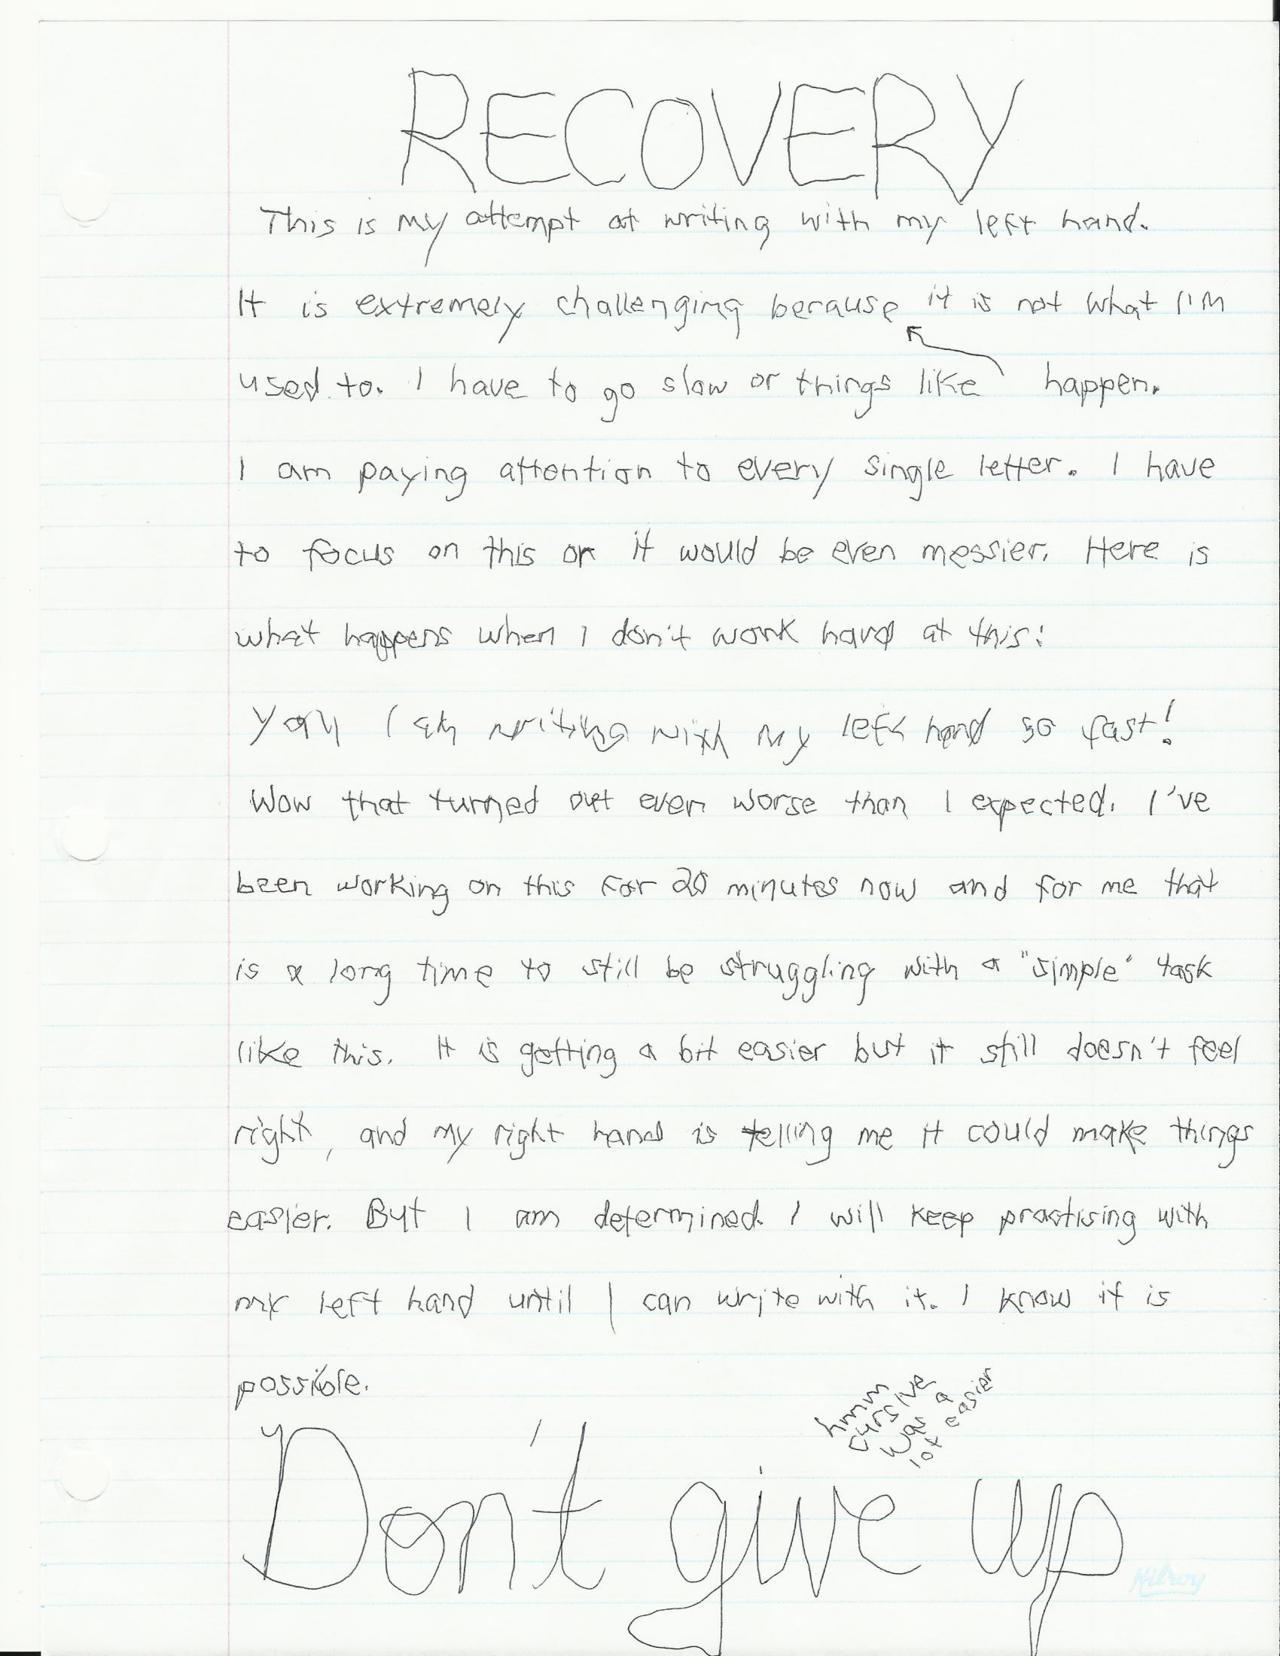 RECOVERY
This is my attempt at writing with my left hand.
It is extremely challenging because it is not what I'm
used to. I have to go slow or things like happen.
I am paying attention to every single letter. I have
to focus on this or it would be even messier. Here is
what happens when I don't work hard at this:
Yay I am writing with my left hand so fast!
Wow that turned out even worse than I expected. I've
been working on this for 20 minutes now and for me that
is a long time to still be struggling with a "simple" task
like this. It is getting a bit easier but it still doesn't feel
right, and my right hand is telling me it could make things
easier. But I am determined. I will keep practising with
my left hand until I can write with it. I know it is
possible.
hmm
cursive
was a
lot easier
Don't give up
Kilroy